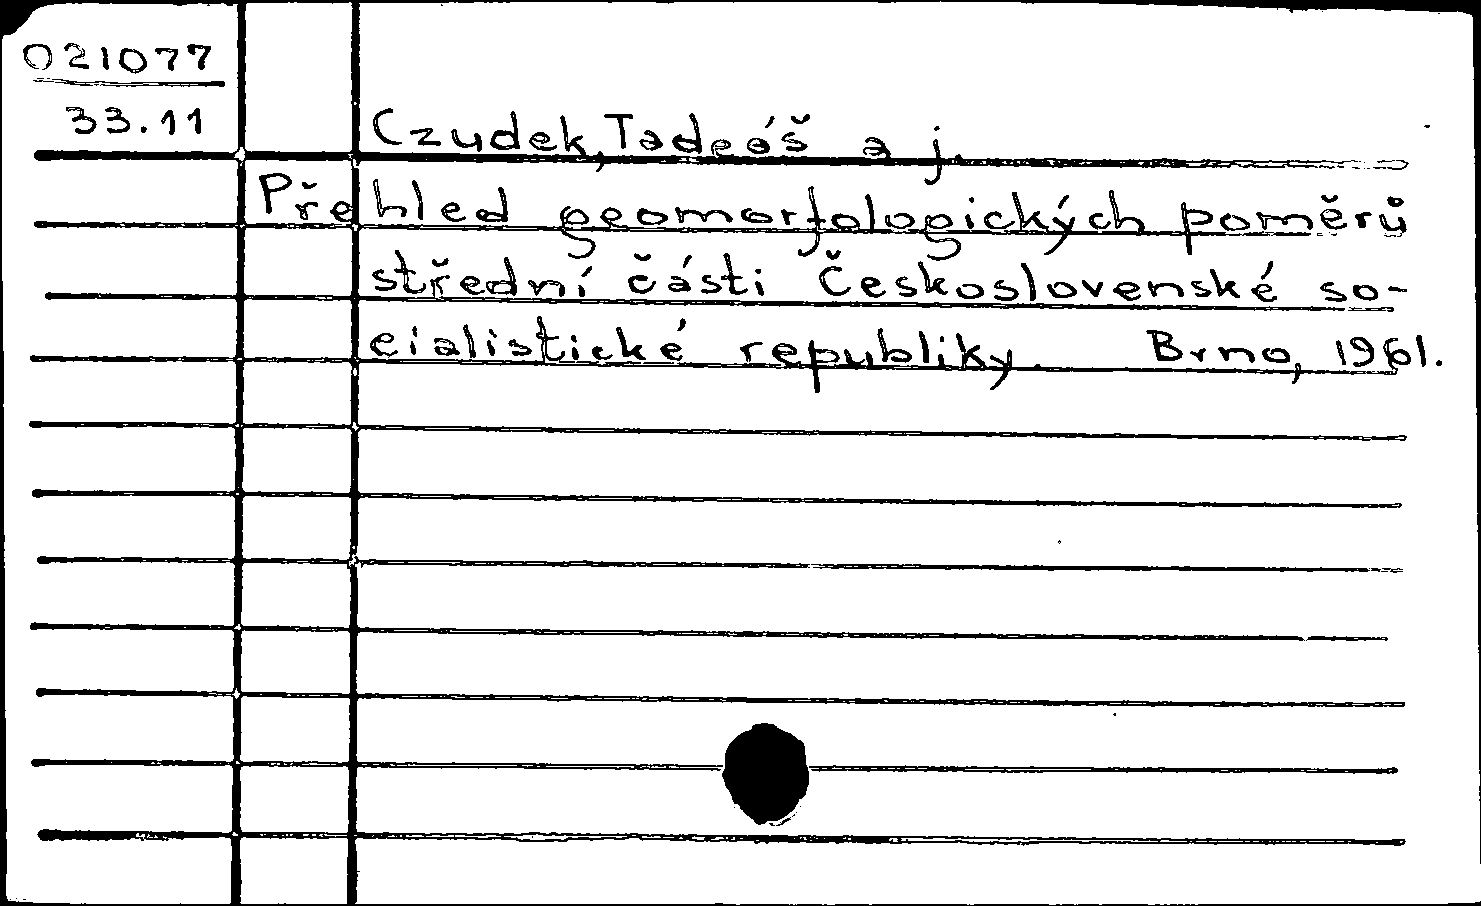 021077
33.11
Czudek, Tadeáš a j.
Přehled geomorfologických poměrů
střední části Československé so-
cialistické republiky. Brno, 1961.